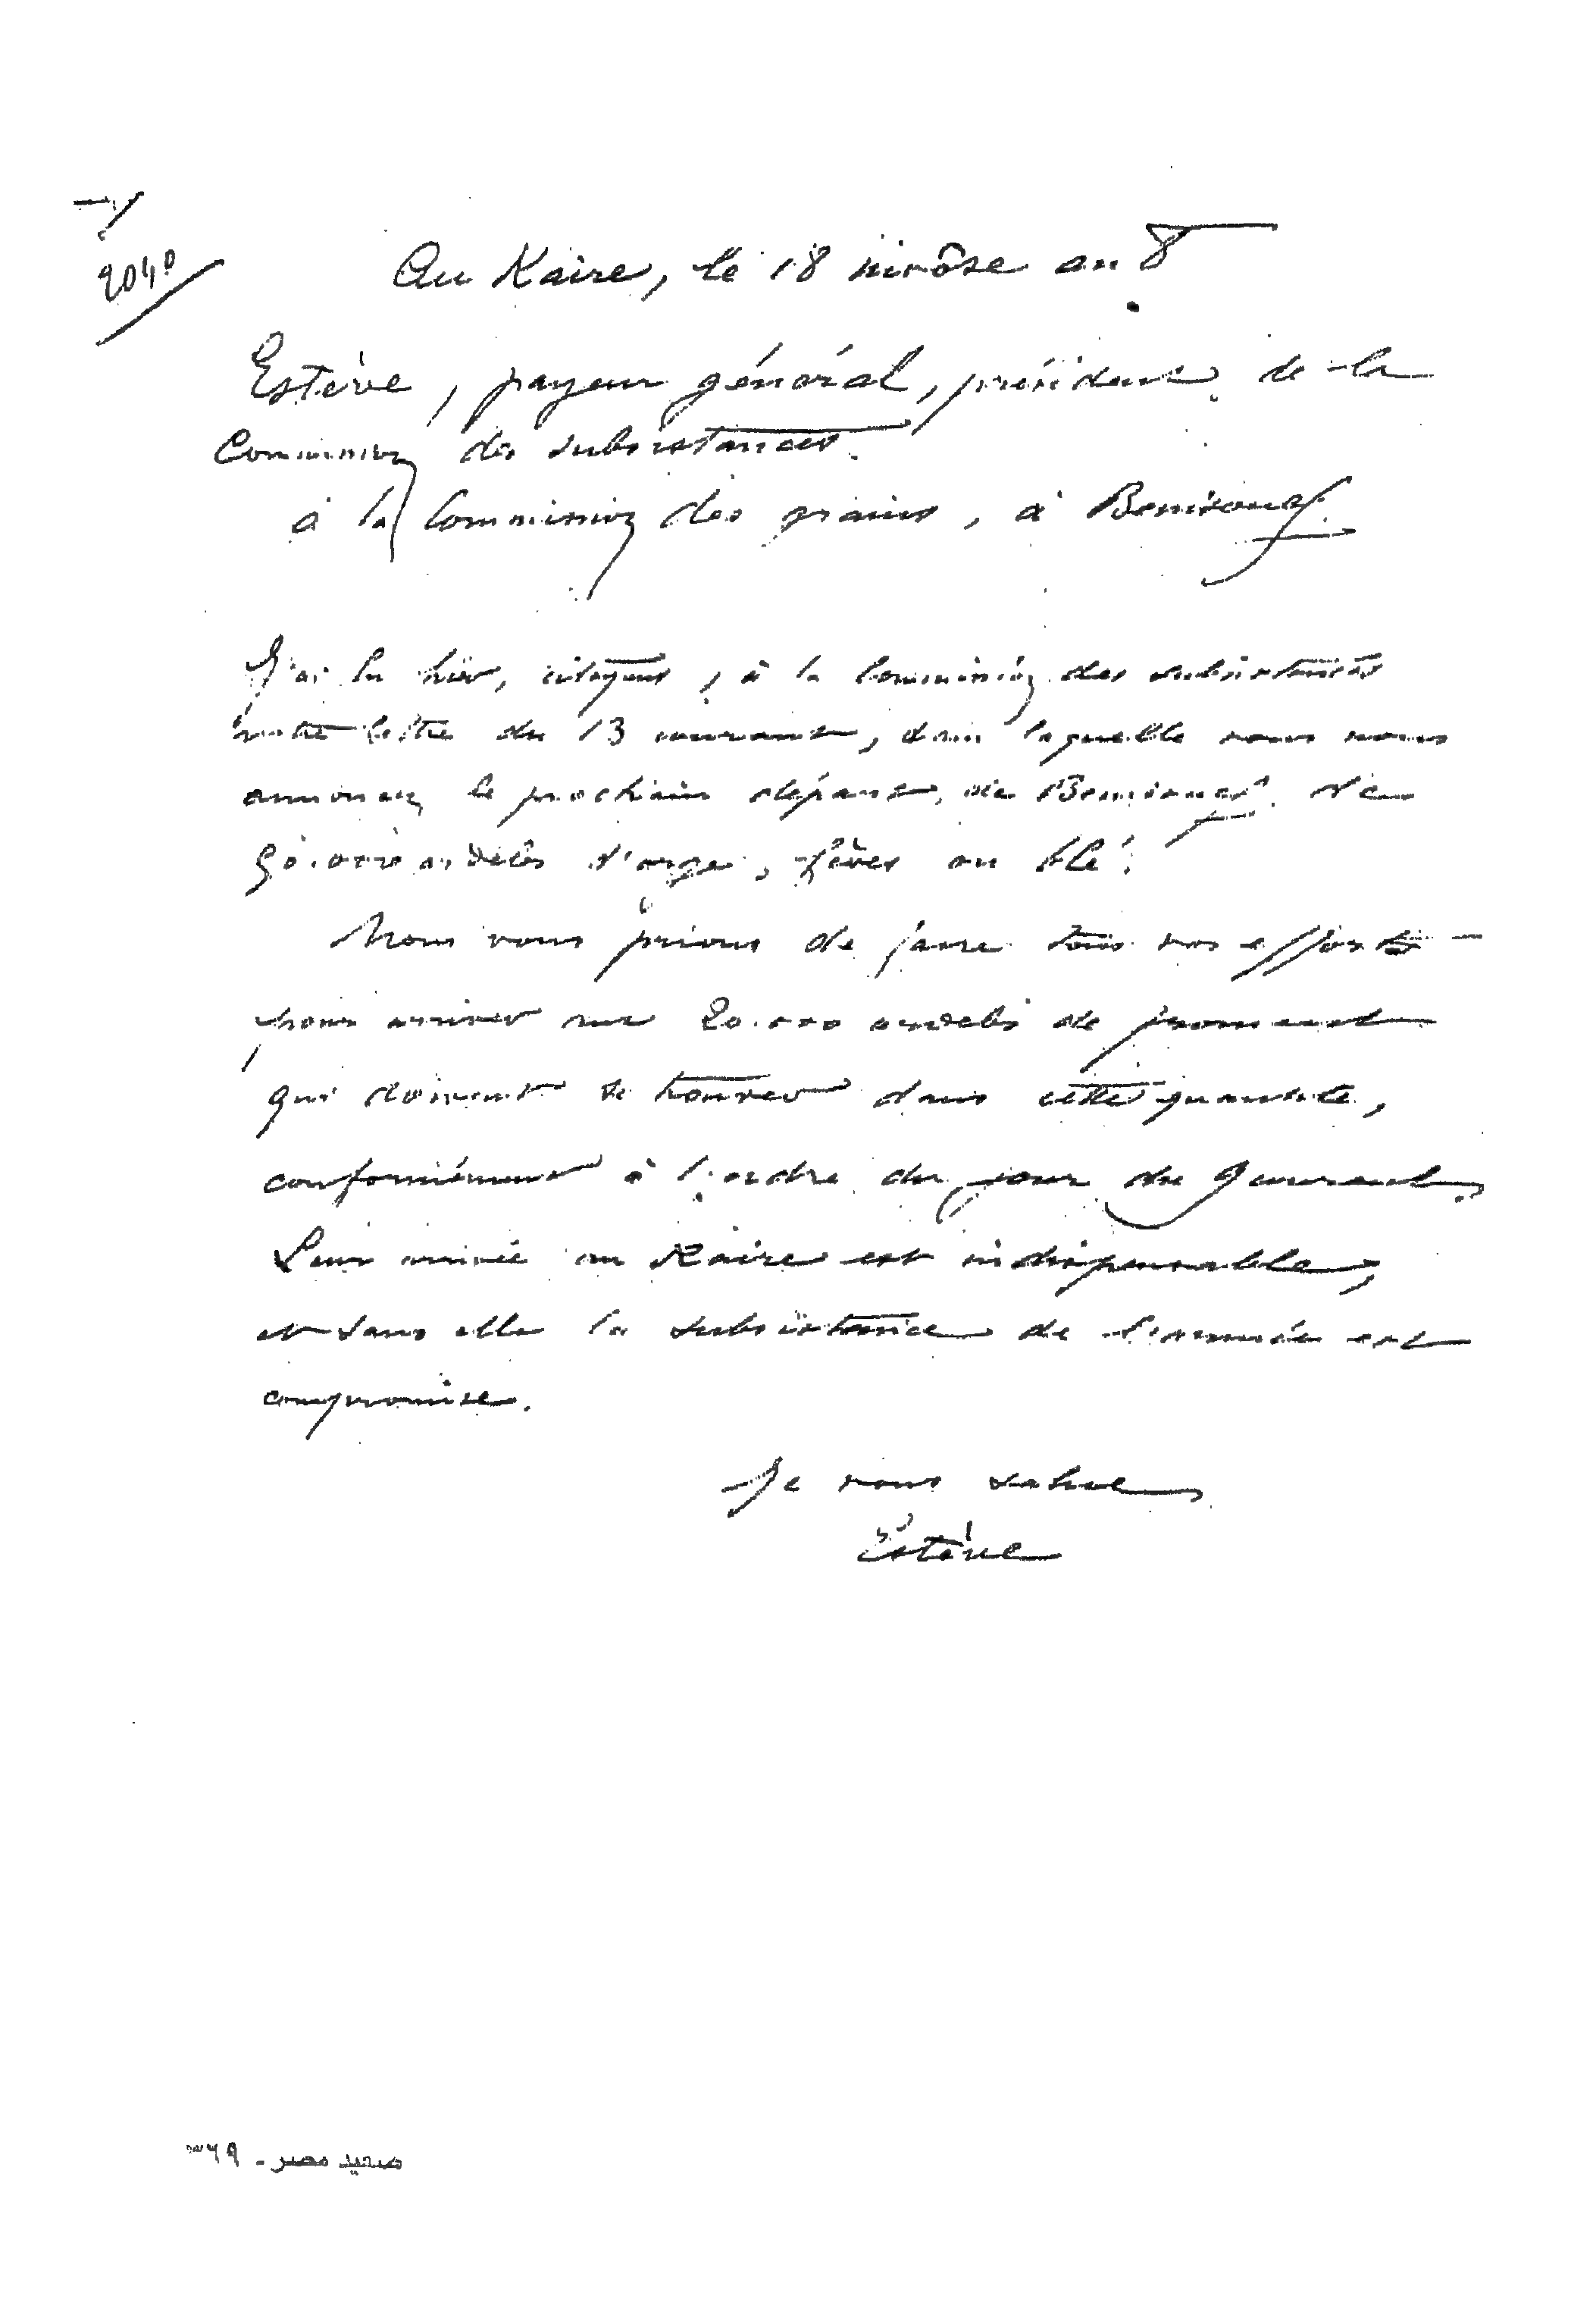 Au Kaire, le 18 nivôse an 8
Estève, payeur général, président de la
Commission des subsistances
à la Commission des grains, à Benisouef.
J'ai lu hier, citoyens, à la Commission des subsistances
votre lettre du 13 courant, dans laquelle vous nous
annoncez le prochain départ, de Benisouef, de
ardebs d'orge, fèves ou blé.
Nous vous prions de faire tous vos efforts
pour arriver aux 20.000 ardebs de froment
qui doivent se trouver dans cette quantité,
conformément à l'ordre du jour du Général,
Leur arrivée au Kaire est indispensable,
et sans elle la subsistance de l'armée est
compromise.
Je vous salue
Estève
صعيد مصر - ٣٦٩